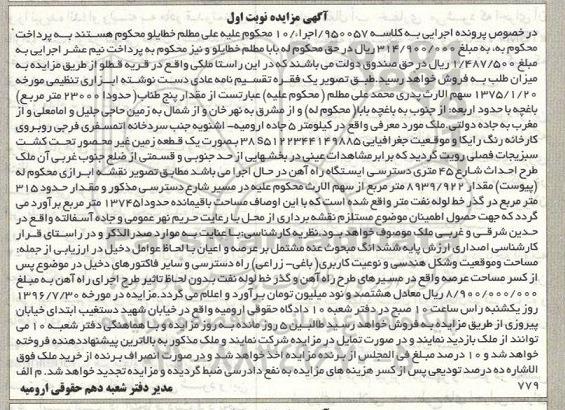 آگهی مزایده نوبت اول
در خصوص پرونده اجرایی به کلاسه ۹۵۰۰۵۷/اجرا/۱۰ محکوم علیه علی مطلم خطایلو محکوم هستند به پرداخت
محکوم به، به مبلغ ۳۱۴/۹۰۰/۰۰۰ ریال در حق محکوم له بابا مطلم خطایلو و نیز محکوم به پرداخت نیم عشر اجرایی به
مبلغ ۱/۴۸۷/۵۰۰ ریال در حق صندوق دولت می باشند که در این راستا ملکی واقع در قریه قطلو از طریق مزایده به
میزان طلب به فروش خواهد رسید. طبق تصویر یک فقره تقسیم نامه عادی دست نوشته ابرازی تنظیمی مورخه
۱۳۷۵/۱/۲۰ سهم الارث پدری محمد علی مطلم (محکوم علیه) عبارتست از مقدار پنج طناب (حدودا ۲۳۰۰۰ متر مربع)
باغچه با حدود اربعه از جنوب به باغچه بابا (محکوم له) و از مشرق به نهر خان و از شمال به زمین حاجی جلیل و امامعلی و از
مغرب به جاده دولتی ملک مورد معرفی واقع در کیلومتر ۵ جاده ارومیه- اشنویه جنب سردخانه اتمسفری فرجی روبروی
کارخانه رنگ رایکا و موقعیت جغرافیایی 38S۵۱۲۲۳۴۴۱۴۹۸۸۵ بصورت یک قطعه زمین غیر محصور تحت کشت
سبزیجات فصلی رویت گردید که برابر مشاهدات عینی در بخشهایی از حد جنوبی و قسمتی از ضلع جنوب غربی آن ملک
طرح احداث شارع ۴۵ متری دسترسی ایستگاه راه آهن در حال اجرا می باشد مطابق تصویر نقشه ابرازی محکوم له
(پیوست) مقدار ۸۹۳۹/۹۲۲ متر مربع از سهم الارث محکوم علیه در مسیر شارع دسترسی مذکور و مقدار حدود ۳۱۵
متر مربع در گذر خط لوله نفت متر واقع شده است که با این اوصاف مساحت باقیمانده حدودا ۱۳۷۴۵ متر مربع برآورد می
گردد که جهت حصول اطمینان موضوع مستلزم نقشه برداری از محل با رعایت حریم نهر عمومی و جاده آسفالته واقع در
حدین شرقی و غربی ملک موصوف خواهد بود. نظریه کارشناسی: با عنایت به موارد صدرالذکر و در راستای قرار
کارشناسی اصداری ارزش پایه ششدانگ مبحوث عنه مشتمل بر عرصه و اعیان با لحاظ عوامل دخیل در ارزیابی از جمله:
مساحت وموقعیت وشکل هندسی و نوعیت کاربری (باغی- زراعی) راه دسترسی و سایر فاکتورهای دخیل در موضوع پس
از کسر مساحت عرصه واقع در مسیرهای طرح راه آهن و گذر خط لوله نفت بدون لحاظ تاثیر طرح اجرای راه آهن به مبلغ
۸/۹۰۰/۰۰۰/۰۰۰ ریال معادل هشتصد و نود میلیون تومان برآورد و اعلام می گردد. مزایده در مورخه ۱۳۹۶/۷/۳۰
روز یکشنبه راس ساعت ۱۰ صبح در دفتر شعبه ۱۰ دادگاه حقوقی ارومیه واقع در خیابان شهید دستغیب ابتدای خیابان
پیروزی از طریق مزایده به فروش خواهد رسید طالبین ۵ روز مانده به روز مزایده و با هماهنگی دفتر شعبه ۱۰ می
توانند از ملک بازدید نمایند و در صورت تمایل در مزایده شرکت نمایند و ملک مذکور به بالاترین پیشنهاددهنده فروخته
خواهد شد و ۱۰ درصد مبلغ فی المجلس از برنده مزایده اخذ خواهد شد و در صورت انصراف برنده از خرید ملک فوق
الاشاره ده درصد تودیعی پس از کسر هزینه های مزایده به نفع دادرسی ضبط گردیده و مزایده تجدید خواهد شد. م الف
۷۷۹
مدیر دفتر شعبه دهم حقوقی ارومیه